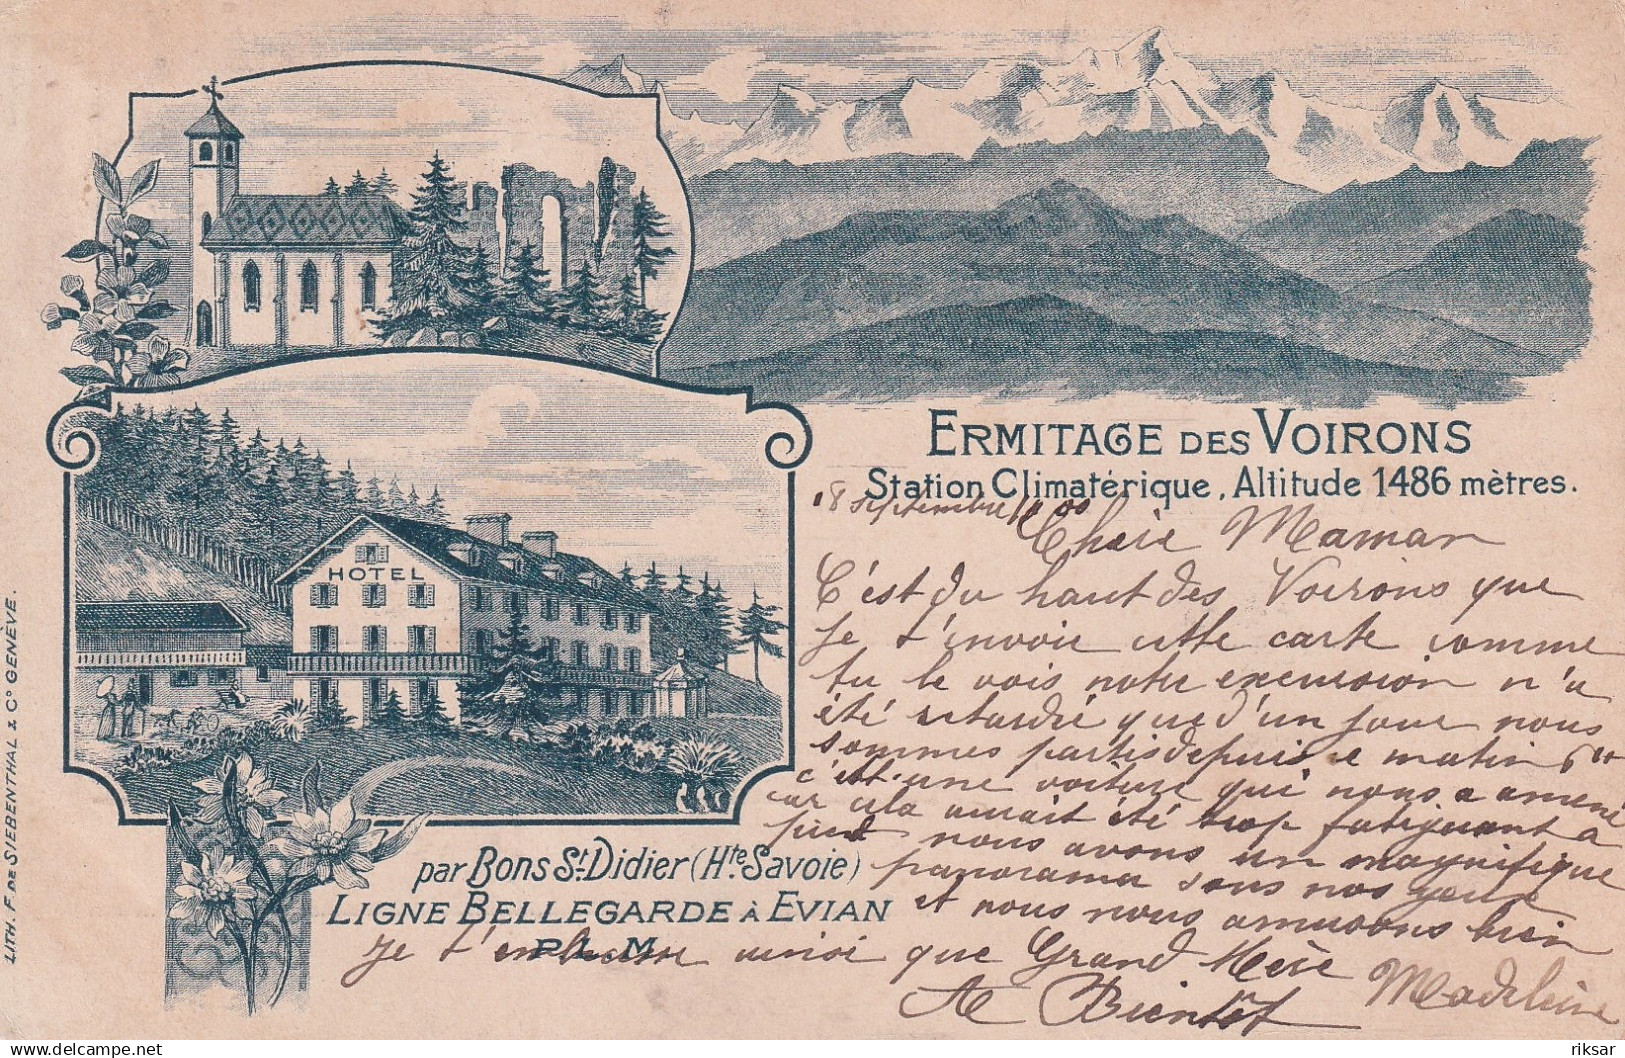 ERMITAGE DES VOIRONS
Station Climatérique, Altitude 1486 mètres.
HOTEL
par Bons St. Didier (Hte. Savoie)
LIGNE BELLEGARDE À EVIAN
P. L. M.
LITH. F. DE SIEBENTHAL & Co GENÈVE.
18 Septembre 1900
Chère Maman
C'est du haut des Voirons que
je t'envoie cette carte comme
tu le vois notre excursion n'a
été retardée que d'un jour nous
sommes partis depuis ce matin 6h
c'est une voiture qui nous a amené
car cela aurait été trop fatiguant à
pied nous avons un magnifique
panorama sous nos yeux
et nous nous amusons bien
Je t'embrasse ainsi que Grand Mère
Madeleine
A Bientôt
delcampe.net
riksar